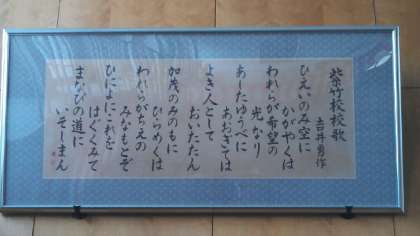 紫竹校校歌
吉井勇作
ひえいのみ空に
かがやくは
われらが希望の
光なり
あしたゆうべに
あおぎては
よき人として
おいたたん
加茂のみのもに
ひらめくは
われらがちえの
みなもとぞ
ひによにこれを
はぐくみて
まなびの道に
いそしまん